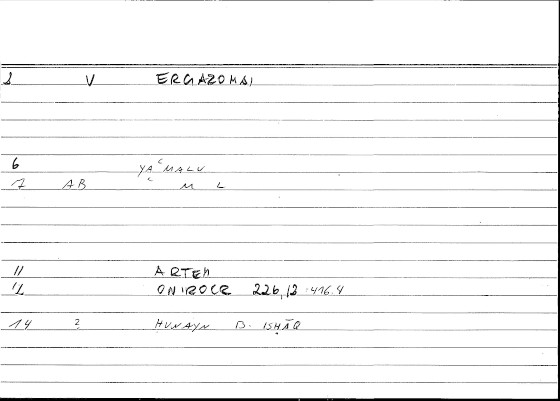 1 V ERGAZOMAI
6 YAʿMALU
7 AB ʿ M L
11 ARTEM
12 ONIROCR 226,12 416.4
14 2 HUNAYN B. ISḤĀQ